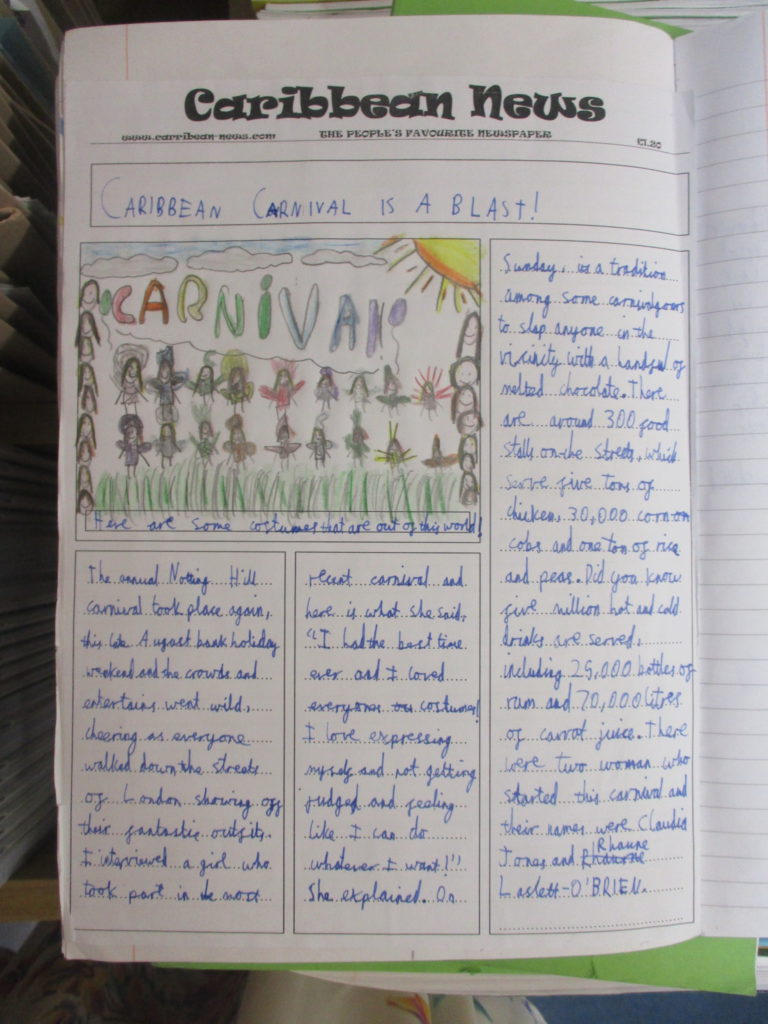 Caribbean News
www.carribean-news.com THE PEOPLE'S FAVOURITE NEWSPAPER £1.20
CARIBBEAN CARNIVAL IS A BLAST!
CARNIVAL
Here are some costumes that are out of this world!
The annual Notting Hill
carnival took place again,
this late August bank holiday
weekend and the crowds and
entertains went wild,
cheering as everyone
walked down the streets
of London showing off
their fantastic outfits.
I interviewed a girl who
took part in the most
recent carnival and
here is what she said,
"I had the best time
ever and I loved
everyones costumes!
I love expressing
myself and not getting
judged and feeling
like I can do
whatever I want!"
She explained. On
Sunday, is a tradition
among some carnivalgoers
to slap anyone in the
vicinity with a handful of
melted chocolate. There
are around 300 food
stalls on the streets, which
serve five tons of
chicken, 30,000 corn on
cobs and one ton of rice
and peas. Did you know
five million hot and cold
drinks are served,
including 25,000 bottles of
rum and 70,000 litres
of carrot juice. There
were two woman who
started this carnival and
their names were Claudia
Jones and Rhaune
Laslett-O'BRIEN.